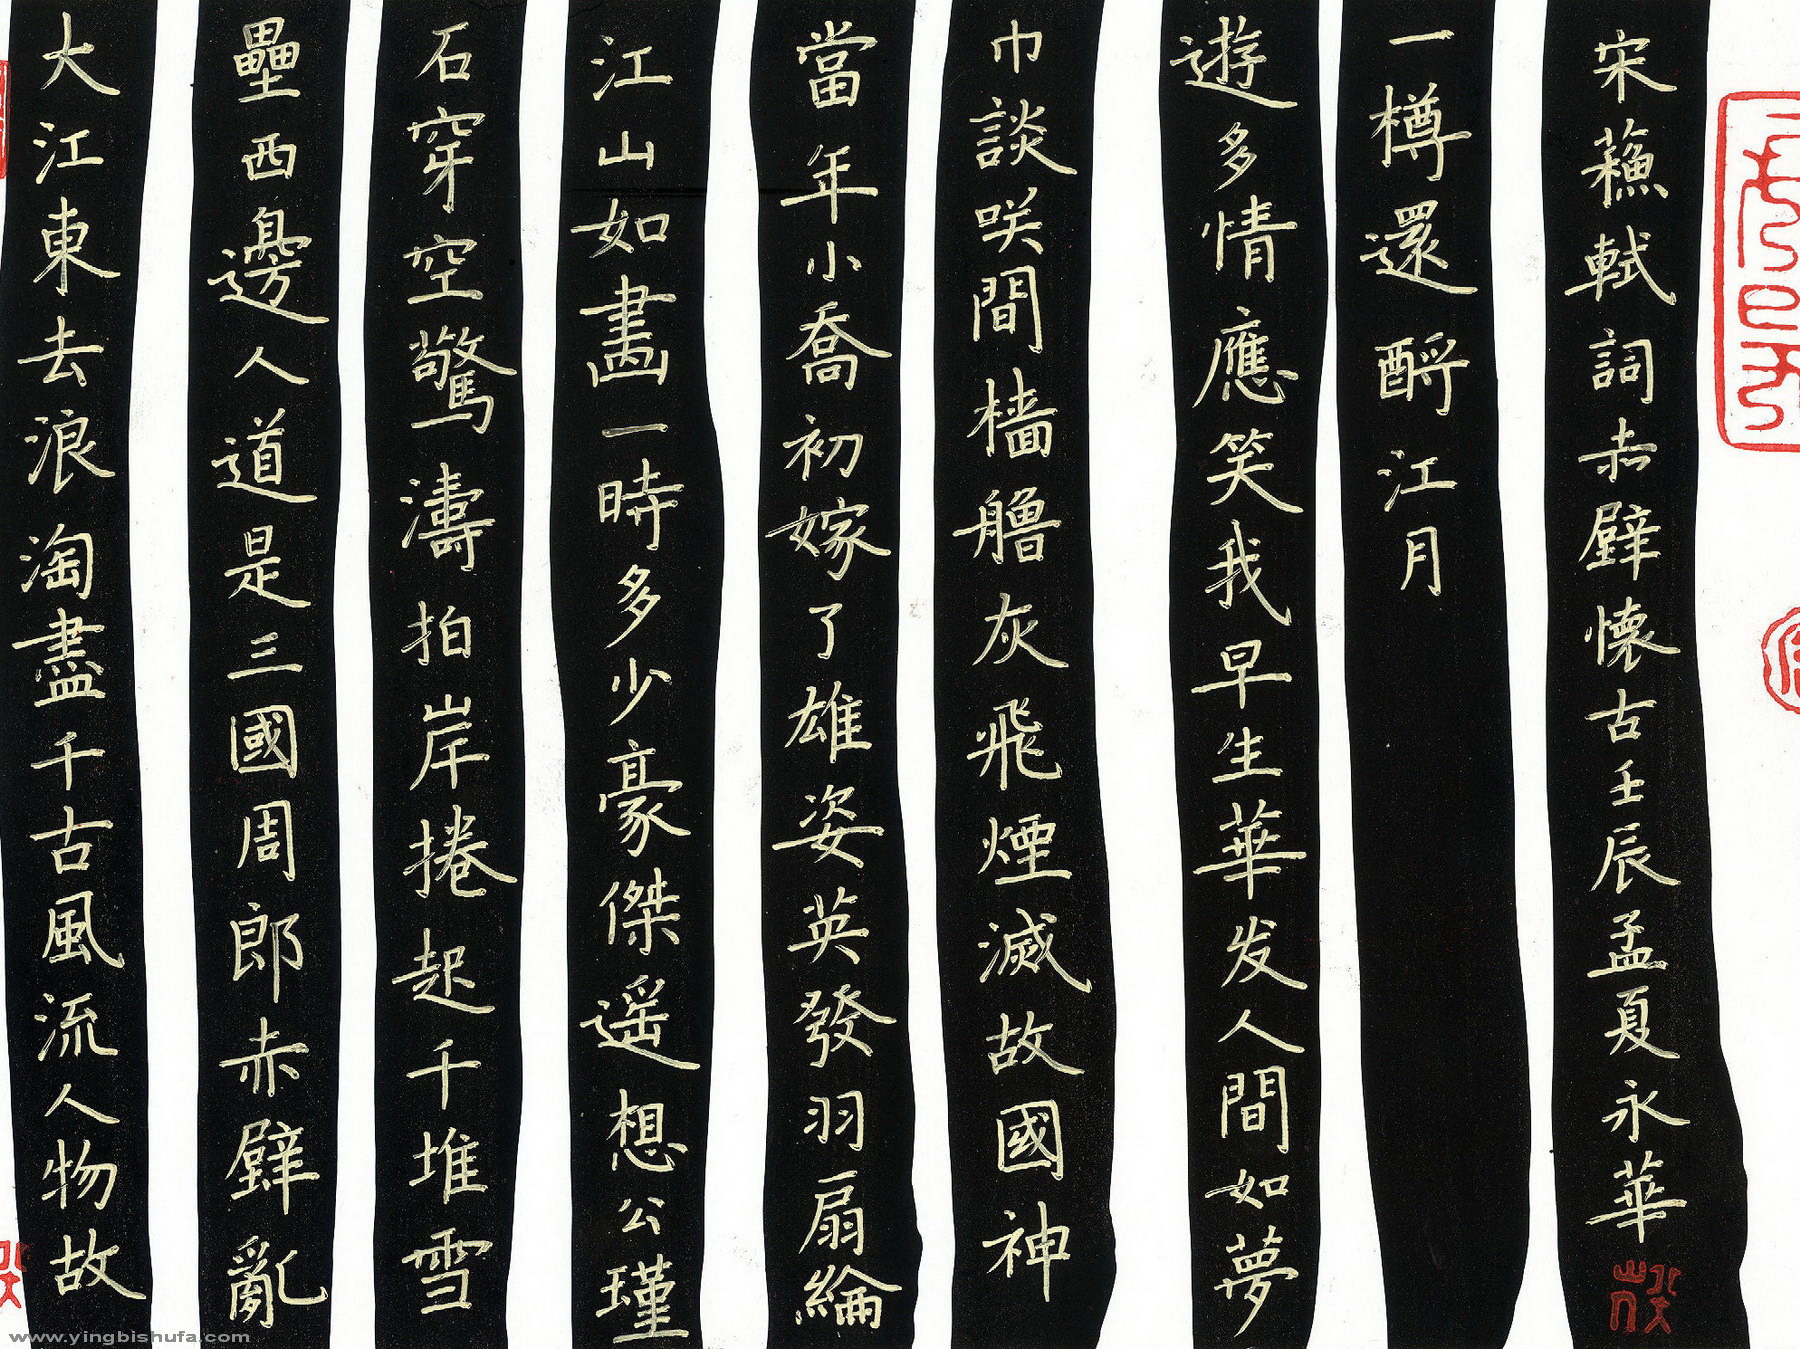 大江東去浪淘盡千古風流人物故
壘西邊人道是三國周郎赤壁亂
石穿空驚濤拍岸捲起千堆雪
江山如畫一時多少豪傑遥想公瑾
當年小喬初嫁了雄姿英發羽扇綸
巾談咲間檣艪灰飛煙滅故國神
遊多情應笑我早生華发人間如夢
一樽還酹江月
宋蘓軾詞赤壁懷古壬辰孟夏永華
www.yingbishufa.com